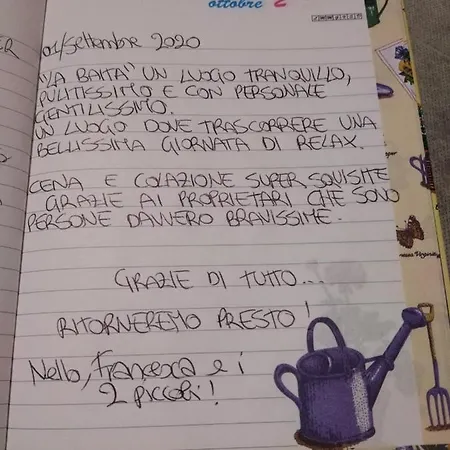 ottobre 2
01/Settembre 2020
"LA BAITA" UN LUOGO TRANQUILLO,
PULITISSIMO E CON PERSONALE
GENTILISSIMO.
UN LUOGO DOVE TRASCORRERE UNA
BELLISSIMA GIORNATA DI RELAX.
CENA E COLAZIONE SUPER SQUISITE
GRAZIE AI PROPRIETARI CHE SONO
PERSONE DAVVERO BRAVISSIME.
GRAZIE DI TUTTO...
RITORNEREMO PRESTO!
Nello, Francesca e i
2 piccoli!